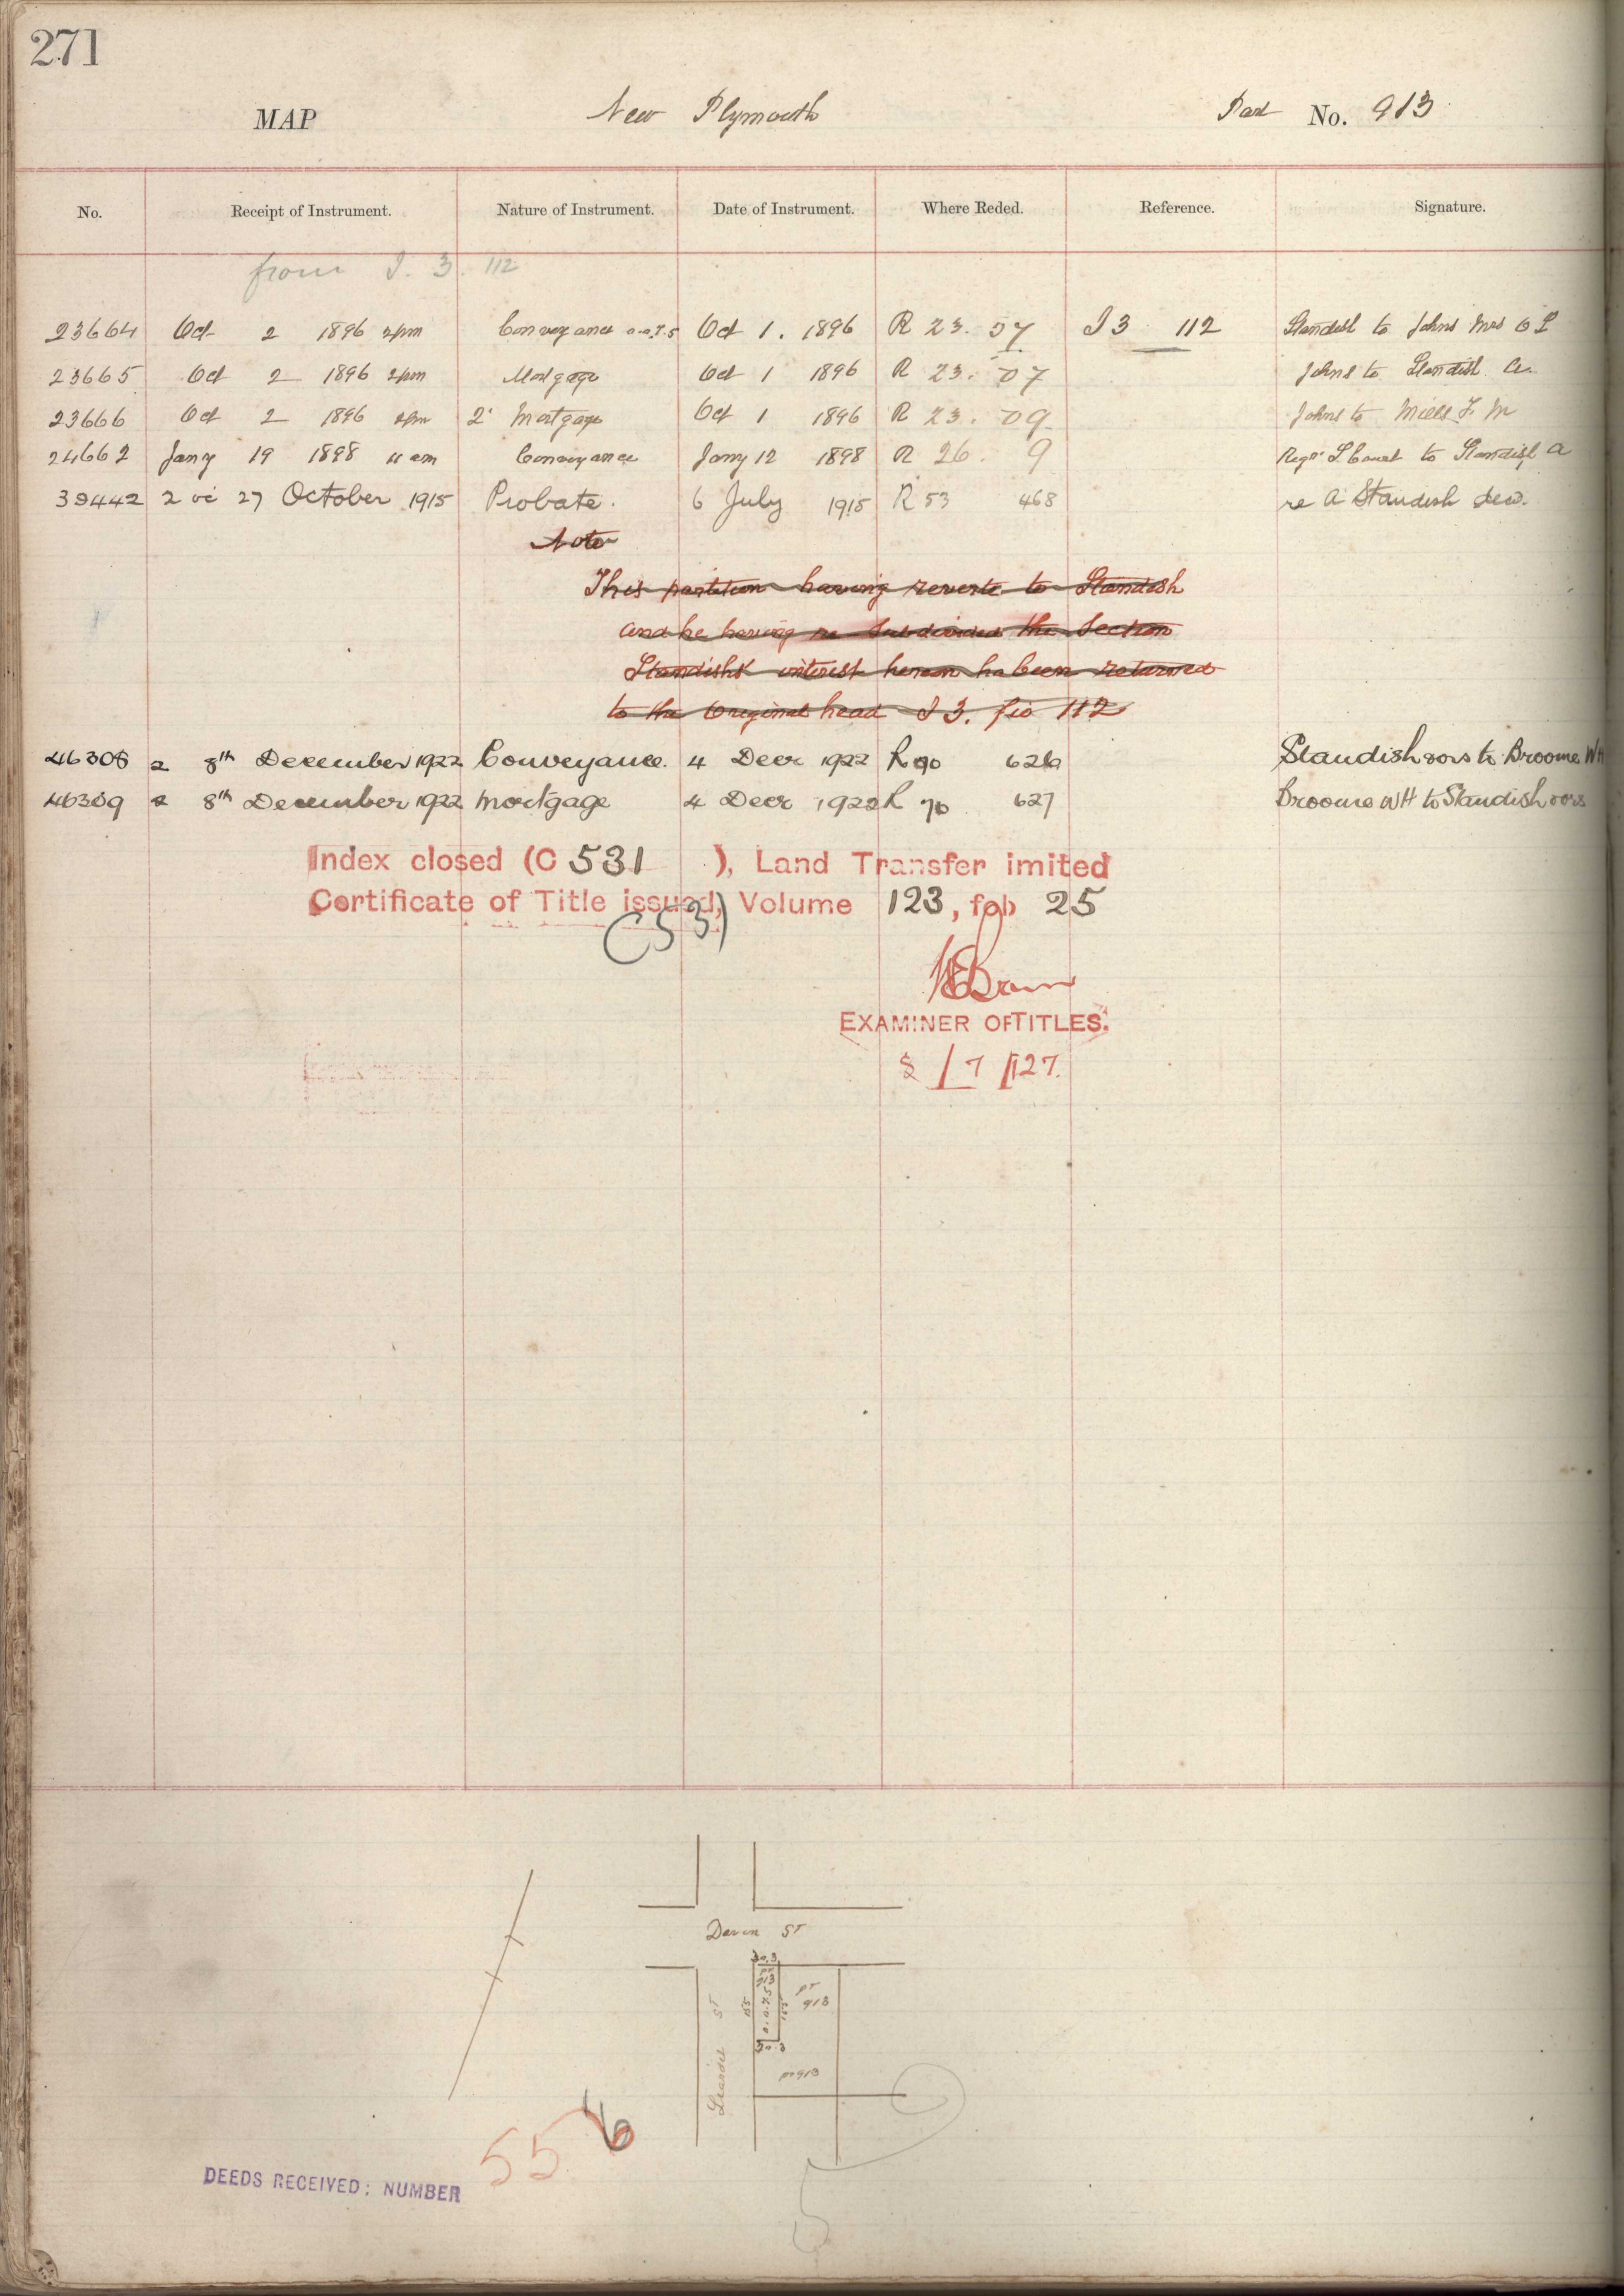 271
MAP New Plymouth Part No. 913
No. Receipt of Instrument. Nature of Instrument. Date of Instrument. Where Reded. Reference. Signature.
from I. 3. 112
23664 Oct 2 1896 2pm Conveyance Oct 1. 1896 R 23. 07 I 3 112 Standish to Johns Mrs
23665 Oct 2 1896 2pm Mortgage Oct 1 1896 R 23. 07 Johns to Standish A.
23666 Oct 2 1896 2pm 2 Mortgage Oct 1 1896 R 23. 09 Johns to Mills F M
24662 Jany 19 1898 11 am Conveyance Jany 12 1898 R 26. 9 to Standish A
39442 2 27 October 1915 Probate. 6 July 1915 R 53 468 re A Standish decd.
Note
This partition having reverte to Standish
and he having re Subdivided the Section
Standishs interest hereon ha been returned
to the Original head I 3. fio 112
46308 2 8th December 1922 Conveyance. 4 Decr 1922 R 626 Standish to Broome WH
46309 2 8th December 1922 Mortgage 4 Decr 1922 R 70 627 Broome WH to Standish
Index closed (C 531 ), Land Transfer imited
Certificate of Title issued, Volume 123, fob 25
C 531
EXAMINER OF TITLES.
8/7/127.
Devon ST
30.3
PT
913
0.0.75
155
155
PT
913
30.3
ST
pt 913
Leandet
556
DEEDS RECEIVED: NUMBER
5